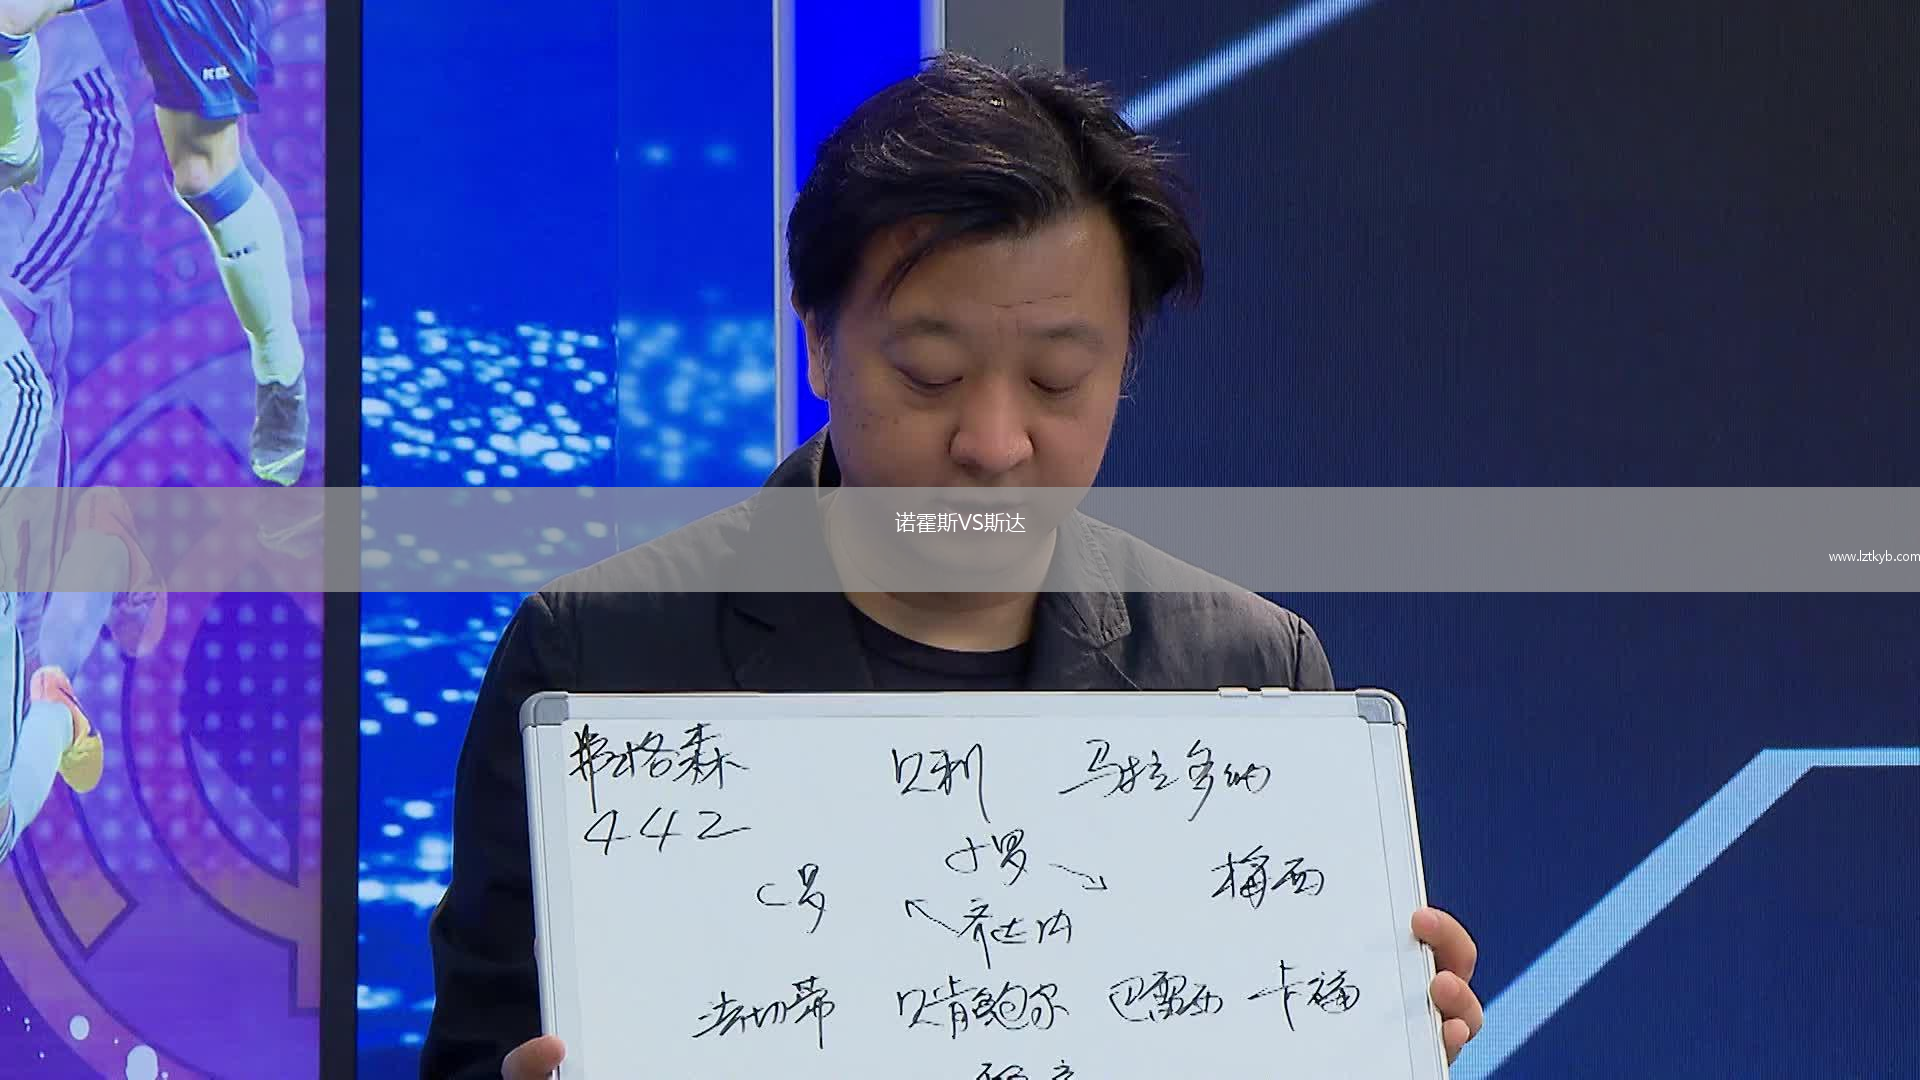 诺霍斯VS斯达
www.lztkyb.com
弗格森 贝利 马拉多纳
442
小罗
C罗 梅西
齐达内
法切蒂 贝肯鲍尔 巴雷西 卡福